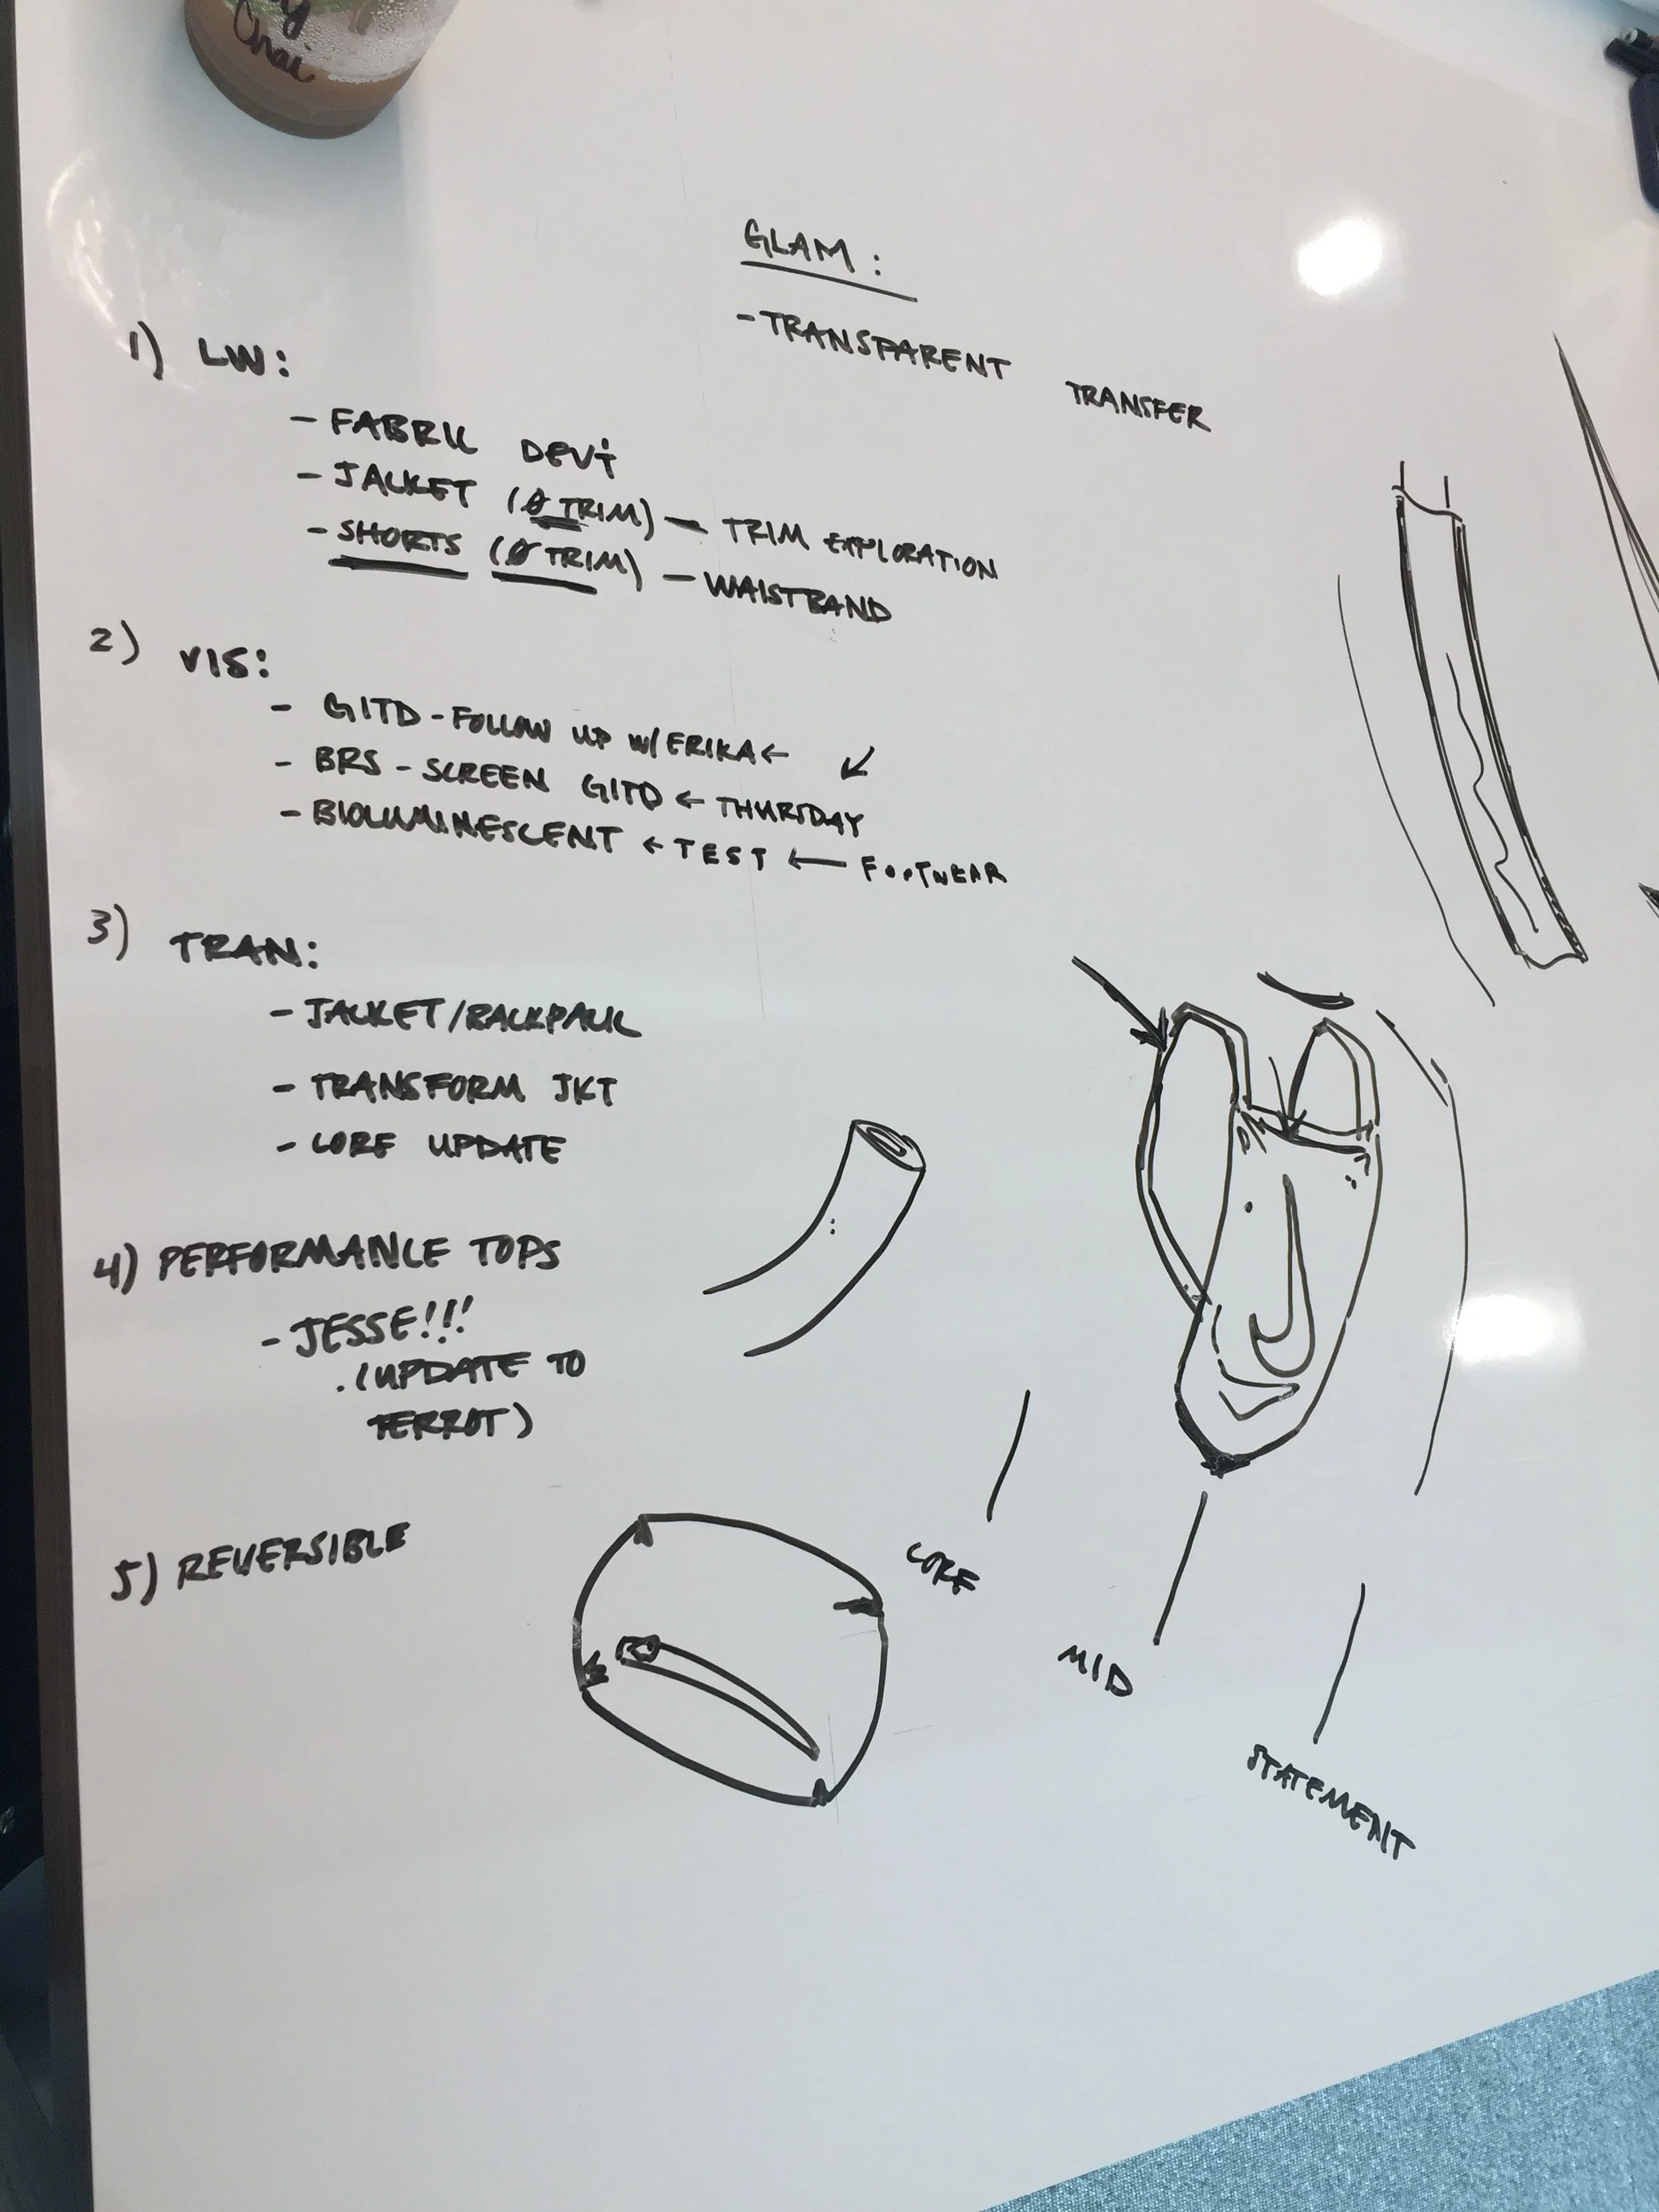 Chai
GLAM:
- TRANSPARENT TRANSFER
1) LW:
- FABRIC DEV'T
- JACKET (Ø TRIM) — TRIM EXPLORATION
- SHORTS (Ø TRIM) — WAISTBAND
2) VIS:
- GITD - FOLLOW UP W/ ERIKA ←
- BRS - SCREEN GITD ← THURSDAY
- BIOLUMINESCENT ← TEST ← FOOTWEAR
3) TRAN:
- JACKET/BACKPACK
- TRANSFORM JKT
- CORE UPDATE
4) PERFORMANCE TOPS
- JESSE!!!
(UPDATE TO
TERROT)
5) REVERSIBLE
CORE
MID
STATEMENT